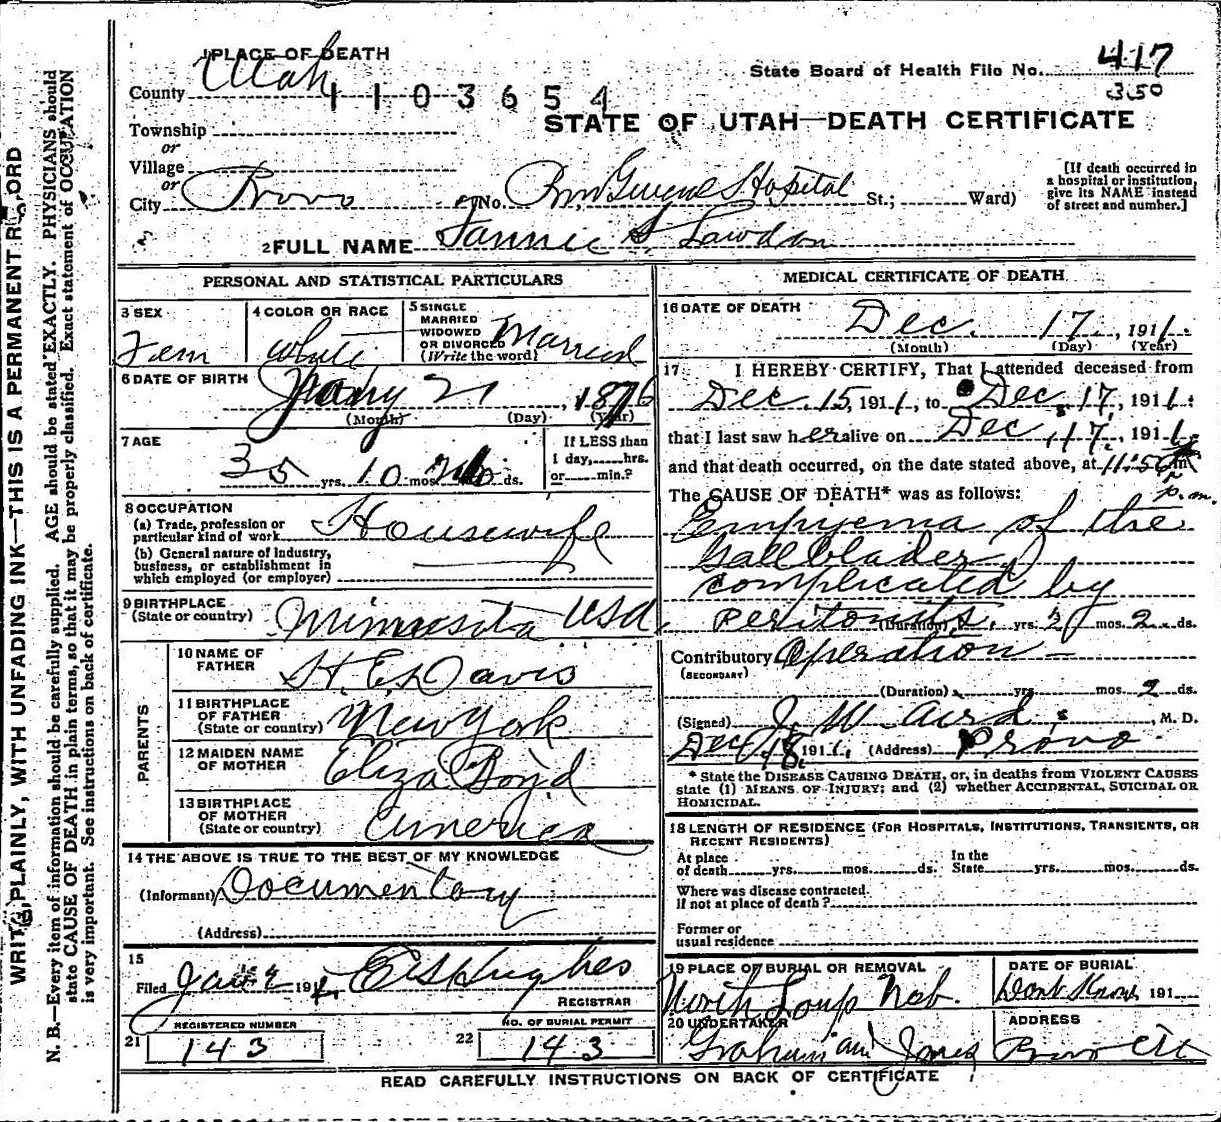 1 PLACE OF DEATH
County Utah
1103654
State Board of Health File No. 417
350
STATE OF UTAH—DEATH CERTIFICATE
Township
or
Village
or
City Provo No. Gen Hospital St.; Ward)
[If death occurred in
a hospital or institution,
give its NAME instead
of street and number.]
2 FULL NAME Fannie S
PERSONAL AND STATISTICAL PARTICULARS
3 SEX Fem
4 COLOR OR RACE white
5 SINGLE
MARRIED
WIDOWED
OR DIVORCED
(Write the word) Married
6 DATE OF BIRTH 21, 1876
(Month) (Day) (Year)
7 AGE
35 yrs. 10 mos. 26 ds.
If LESS than
1 day, hrs.
or min.?
8 OCCUPATION
(a) Trade, profession or
particular kind of work Housewife
(b) General nature of industry,
business, or establishment in
which employed (or employer)
9 BIRTHPLACE
(State or country) Minnesota USA
PARENTS
10 NAME OF
FATHER H. E. Davis
11 BIRTHPLACE
OF FATHER
(State or country) New York
12 MAIDEN NAME
OF MOTHER Eliza Boyd
13 BIRTHPLACE
OF MOTHER
(State or country) America
14 THE ABOVE IS TRUE TO THE BEST OF MY KNOWLEDGE
(Informant) Documentary
(Address)
15
Filed Jan 2 191 Hughes
REGISTRAR
REGISTERED NUMBER
21 143
NO. OF BURIAL PERMIT
22 143
MEDICAL CERTIFICATE OF DEATH
16 DATE OF DEATH Dec. 17, 1911.
(Month) (Day) (Year)
17 I HEREBY CERTIFY, That I attended deceased from
Dec. 15, 1911, to Dec. 17, 1911.
that I last saw her alive on Dec, 17., 1911.
and that death occurred, on the date stated above, at 11:50 m
p.m.
The CAUSE OF DEATH* was as follows:
Empyema of the
Gall blader
complicated by
peritonitis. (Duration) yrs. mos. 2 ds.
Contributory Operation
(SECONDARY)
(Duration) yrs. mos. 2 ds.
(Signed) J. W. Aird, M. D.
Dec 18. 1911. (Address) Provo
* State the DISEASE CAUSING DEATH, or, in deaths from VIOLENT CAUSES
state (1) MEANS OF INJURY; and (2) whether ACCIDENTAL, SUICIDAL OR
HOMICIDAL.
18 LENGTH OF RESIDENCE (FOR HOSPITALS, INSTITUTIONS, TRANSIENTS, OR
RECENT RESIDENTS)
At place
of death yrs. mos. ds.
In the
State yrs. mos. ds.
Where was disease contracted
if not at place of death?
Former or
usual residence
19 PLACE OF BURIAL OR REMOVAL
North Loup Neb.
DATE OF BURIAL
Dont Know 191
20 UNDERTAKER
Graham and Jones
ADDRESS
Provo
READ CAREFULLY INSTRUCTIONS ON BACK OF CERTIFICATE
WRITE PLAINLY, WITH UNFADING INK—THIS IS A PERMANENT RECORD
N. B.—Every item of information should be carefully supplied. AGE should be stated EXACTLY. PHYSICIANS should
state CAUSE OF DEATH in plain terms, so that it may be properly classified. Exact statement of OCCUPATION
is very important. See instructions on back of certificate.